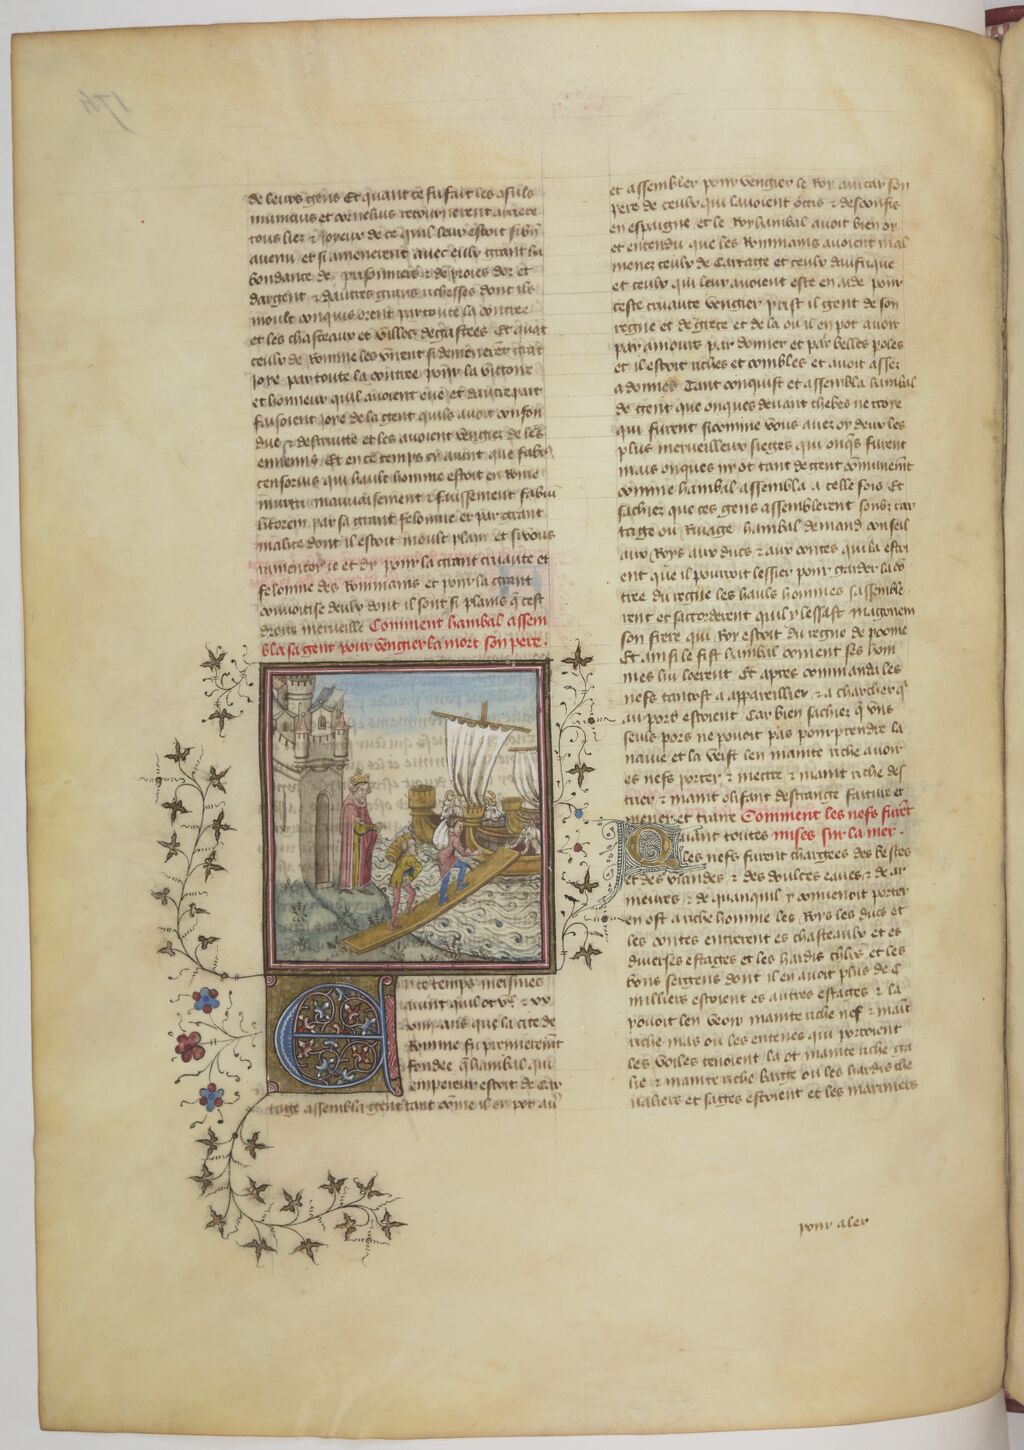 de leurs gens Et quant ce fu fait les
et cornelius retournerent arriere
tous liez & ioyeux de ce quil leur estoit si bn
auenu et si amenerent auec eulx grant ha
bondance de prisonniers & de proies dor et
dargent & dautres grans richesses dont ilz
moult conquis orent par toute la contree
et les chasteaux et villes degastees Et quat
ceulx de Romme les virent si demenerent grat
ioye par toute la contree pour la victoire
et honneur quil auoient eue et dautre part
faisoient ioye de la gent quilz auoit confon
due & destruitte et les auoient vengiez de les
ennemis Et en ce temps cy auint que fabi9
censorius qui hault homme estoit en Rome
murtri mauuaisement & faussement fabiu
litorem par sa grant felonnie et par grant
malice dont il estoit moult plain et si vous
ie et dy pour la grant cruaute et
felonnie des Rommains et pour la grant
conuoitise deulx dont il sont si plains q̃ cest
droite merueille Comment hanibal assem
bla sa gent pour vengier la mort son pere .
En ce temps meismes
auint quil ot
ans que la cite de
Romme fu premieremt
fondee q̃ hanibal qui
empereur estoit de Car
tage assembla gent tant cõme il en pot au
et assembler pour vengier le Roy amicar son
pere de ceulx qui lauoient occis & desconfis
en espaigne et le Roy hanibal auoit bien oy
et entendu que les Rommains auoient mal
menez ceulx de Cartage et ceulx dauffrique
et ceulx qui leur auoient este en aide pour
ceste cruaute vengier prist il gent de son
regne et de grece et de la ou il en pot auoir
par amours par donner et par belles poles
et il estoit riches et combles et auoit assez
a donner Tant conquist et assembla hanibal
de gent que onques deuant thebes ne troye
qui furent si comme vous auez oy deux les
plus merueilleux sieges qui onqs furent
mais onques ny ot tant de gent cõmunemt
comme hanibal assembla a celle fois Et
sachiez que ces gens assemblerent soubz car
tage ou Riuage hanibal demand conseil
aux Roys aux ducs & aux contes qui la esti
ent que il pourroit lessier pour garder la cõ
tree du regne les hauls hommes sassemble
rent et sacorderent quil y lessast magonem
son frere qui Roy estoit du regne de poome
Et ainsi le fist hanibal coment ses hom
mes lui loerent Et apres commanda les
nefs tantost a appareillier & a charchier q̃
au pors estoient Car bien sachiez q̃ vns
seuls pors ne pouoit pas pourprendre la
nauie et la veist len mainte riche auoir
es nefs porter & mettre & maint riche des
trier & maint olifant destrange faiture et
mener et traire Comment les nefs furet
toutes mises sur la mer .
Quant les nefs furent chargees des bestes
et des viandes & des doulces eaues & de ar
meures & de quanquil y conuenoit porter
en ost a riche homme les Roys les ducs et
les contes entrerent es chasteaulx et es
diuerses estages et les hardis chlrs et les
bons sergens dont il en auoit plus de C
milliers estoient es autres estages & la
pouoit len veoir mainte riche nef & maît
riche mas ou les entenes qui portoient
les voiles tenoient la ot mainte riche ga
lie & mainte riche barge ou les hardis che
ualiers et sages estoient et les mariniers
pour aler